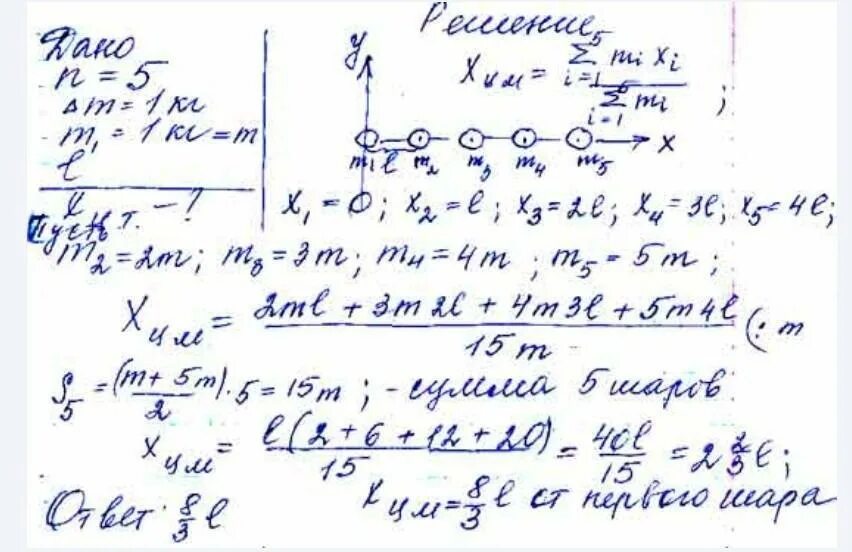 Решение
Дано
n = 5
Δm = 1 кг
m₁ = 1 кг = m
l
x – ?
y
Xцм = Σ⁵ᵢ₌₁ mᵢ xᵢ / Σ⁵ᵢ₌₁ mᵢ ;
m₁ l m₂ m₃ m₄ m₅ x
x₁ = 0; x₂ = l; x₃ = 2l; x₄ = 3l; x₅ = 4l;
Пусть
m₂ = 2m; m₃ = 3m; m₄ = 4m; m₅ = 5m;
Xцм = (2ml + 3m2l + 4m3l + 5m4l) / 15m (: m
S₅ = (m + 5m)/2 · 5 = 15m; - сумма 5 шаров
Xцм = l(2 + 6 + 12 + 20) / 15 = 40l/15 = 2 2/3 l;
Ответ: 8/3 l
Xцм = 8/3 l от первого шара